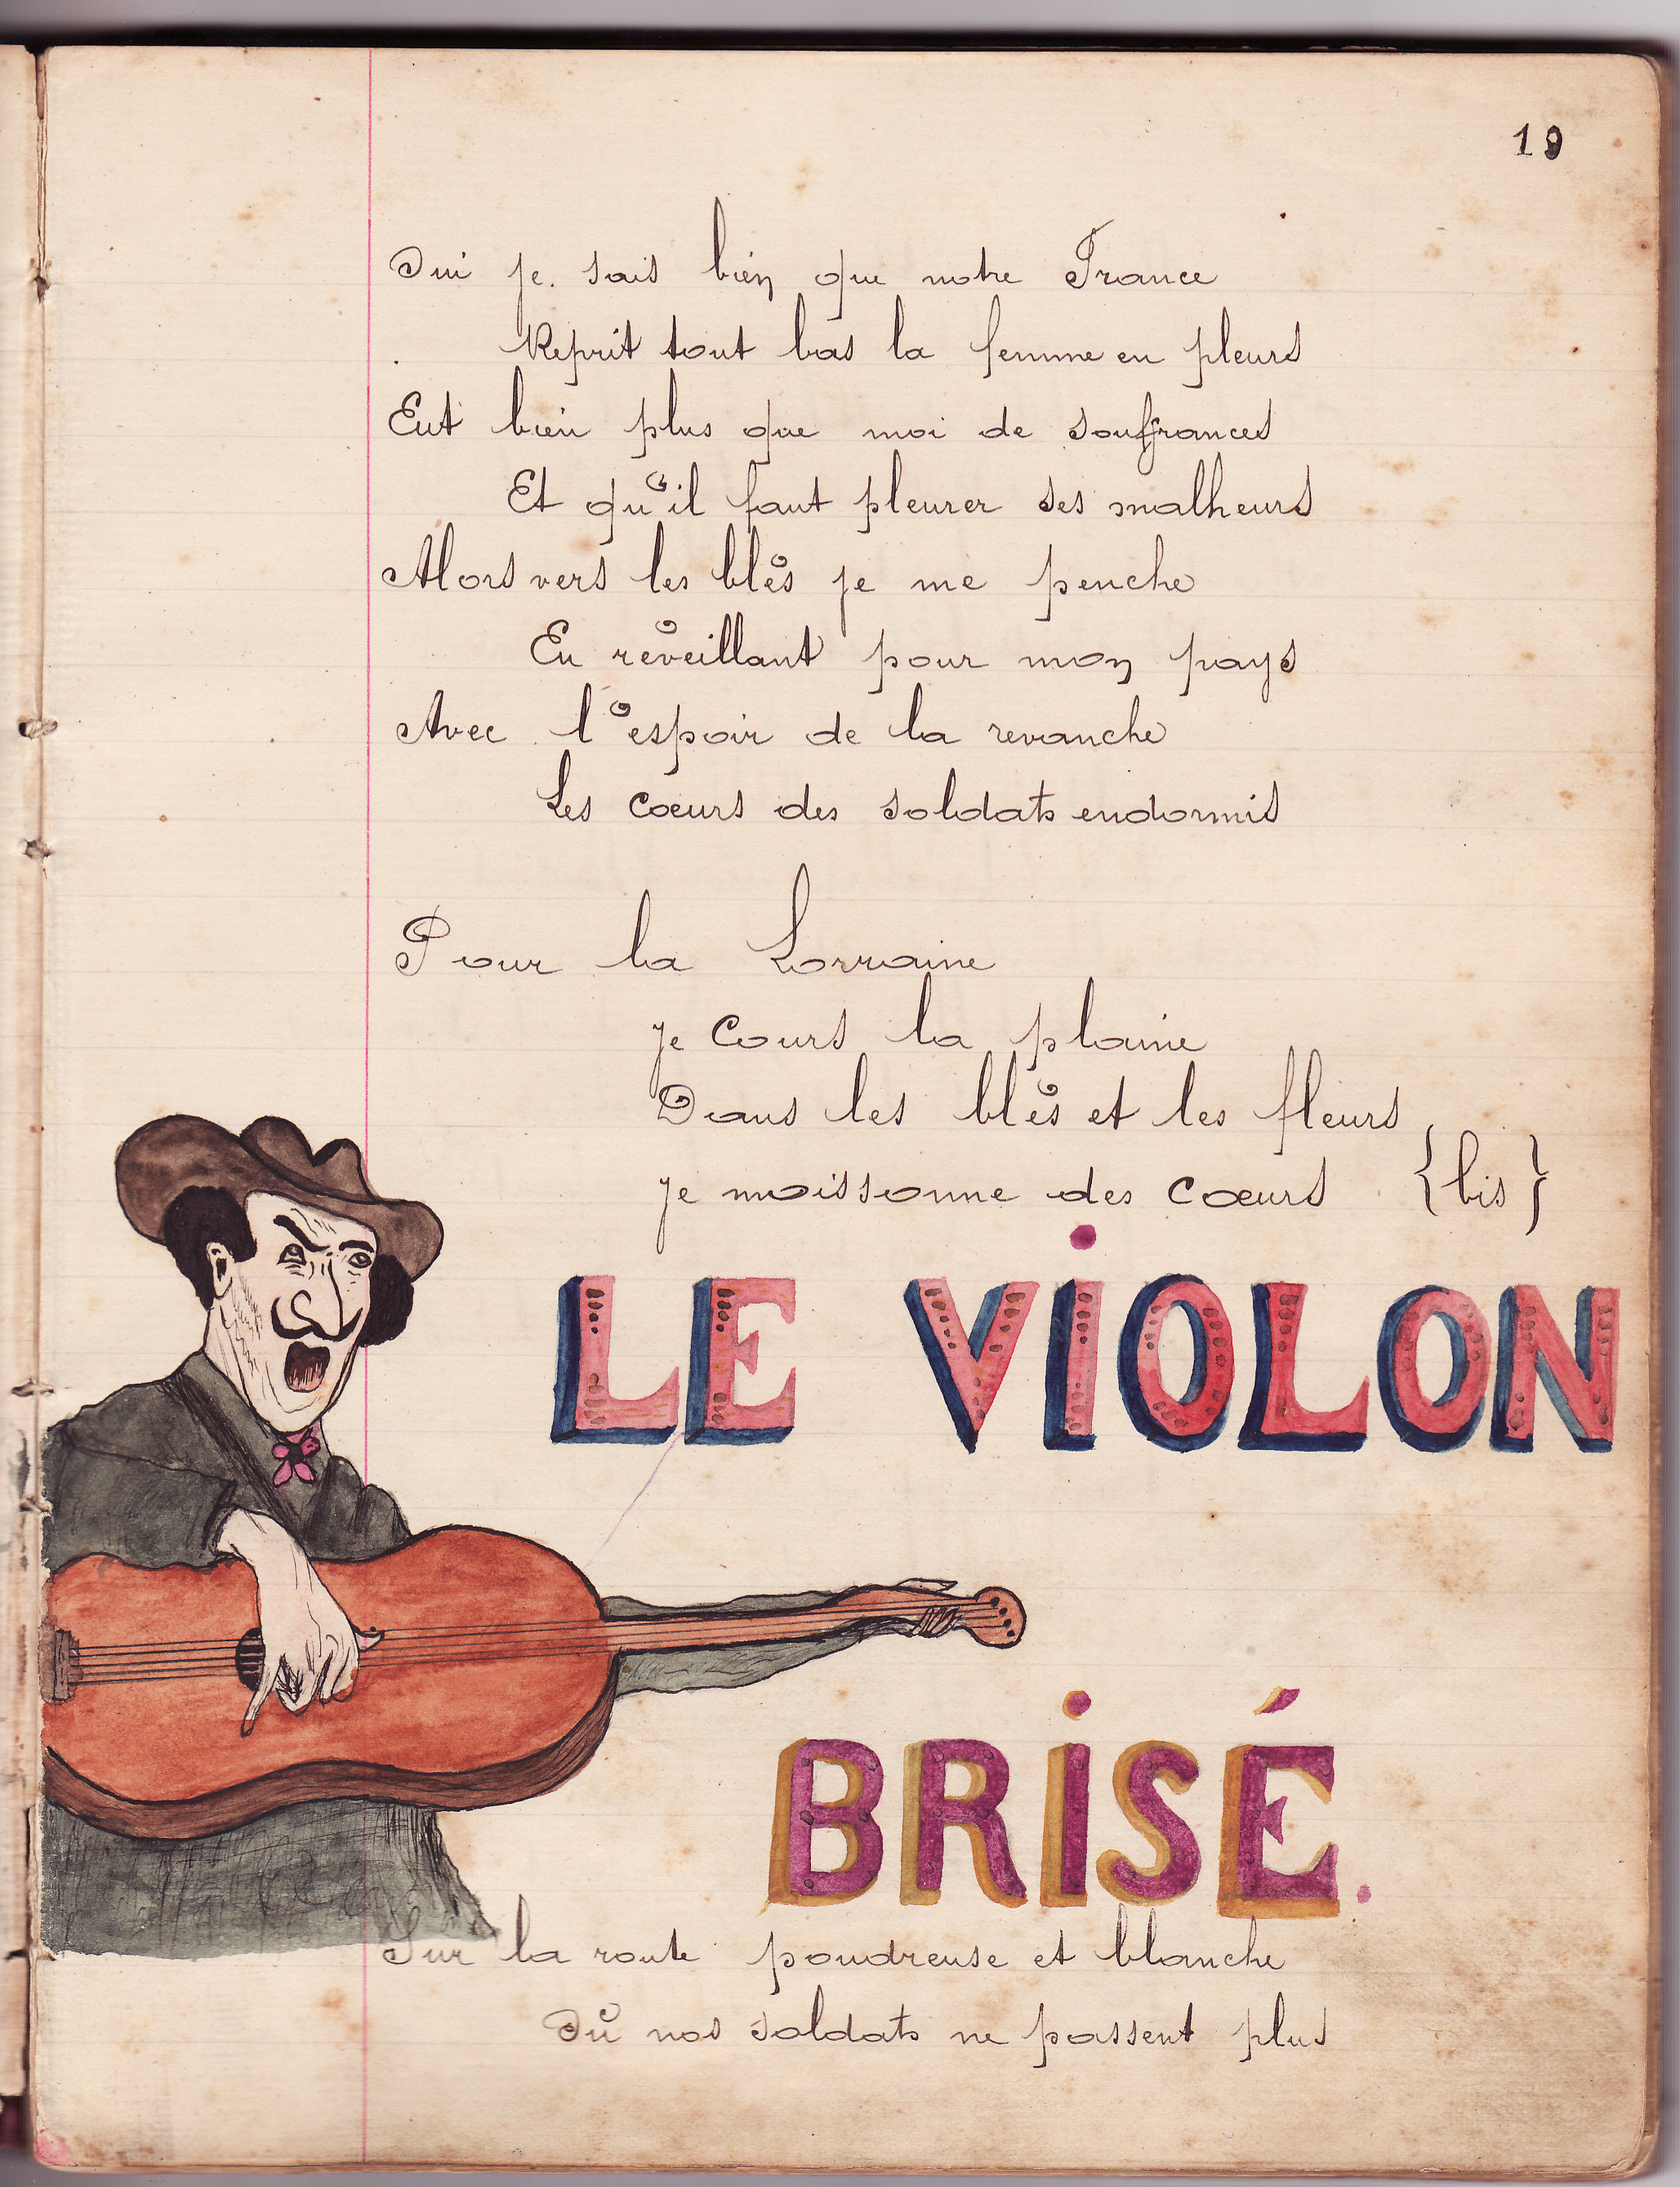 19
Oui je sais bien que notre France
Reprit tout bas la femme en pleurs
Eut bien plus que moi de souffrances
Et qu'il faut pleurer ses malheurs
Alors vers les blés je me penche
En réveillant pour mon pays
Avec l'espoir de la revanche
Les cœurs des soldats endormis
Pour la Lorraine
je cours la plaine
Dans les blés et les fleurs
je moissonne des cœurs {bis}
LE ViOLON
BRiSÉ.
Sur la route poudreuse et blanche
Où nos soldats ne passent plus